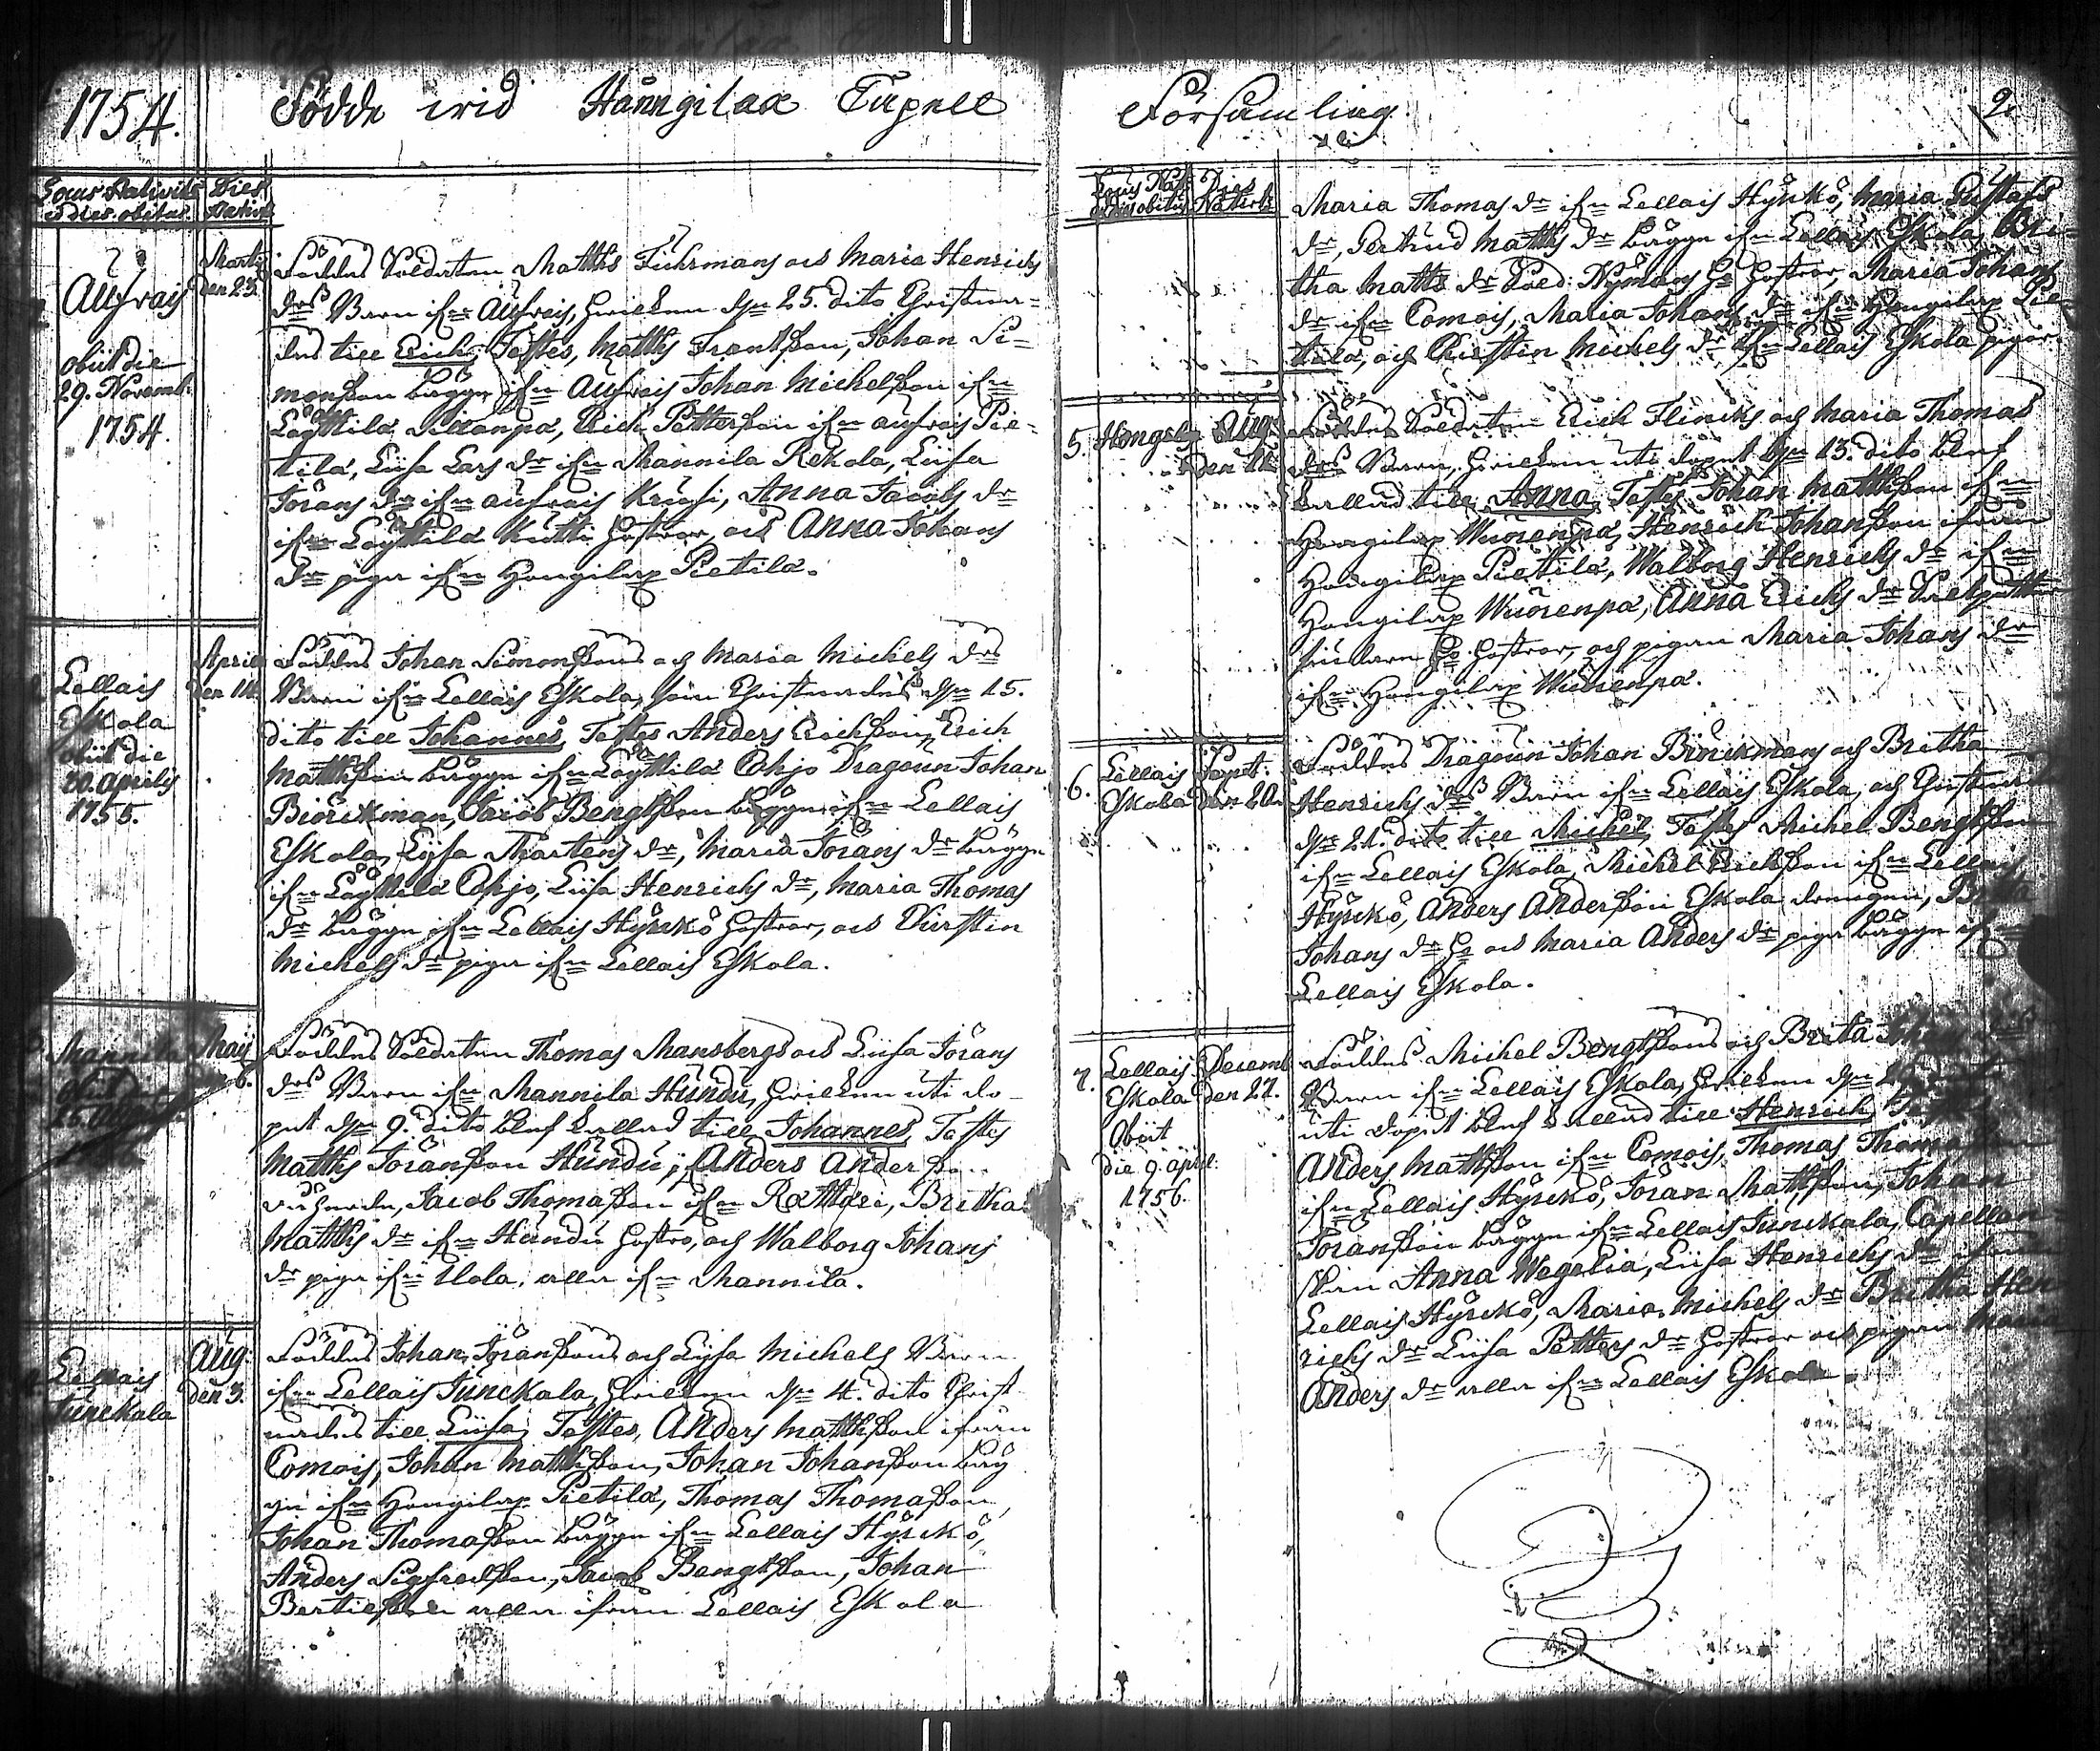 1754. Födde wid Hånngilax Capell
Locus Nativit: Dies
et dies obitus. Nativit:
Aufvais
obiit die
29. Novemb:
1754.
Marti
den 23.
Föddes Soldaten Matths Fuhrmans och Maria Henrichs
drs Barn ifrn Aufvais, hwilken dn 25. dito Christna-
des till Erich, Testes, Matths Frantsson, Johan Si-
monsson bägge ifrn Aufvais Johan Michelsson ifrn
Löyttilä Seikanpä, Erich Pettersson ifrn Aufvais Pie-
tilä, Liisa Lars dr ifrn Mannila Rekola, Liisa
Jörans dr ifrn Aufvais Krusi, Anna Jacobs dr
ifrn Löyttilä Kutti hustror, och Anna Johans
dr piga ifrn Hongilax Pietilä.
Lellais
Eskola
obiit die
20. Aprilis
1755.
April
den 14.
Föddes Johan Simonssons och Maria Michels drs
Barn ifrn Lellais Eskola, som Christnades dn 15.
dito till Johannes, Testes Anders Erichsson, Erich
Matthsson bägge ifrn Löyttilä Ohjo Dragoun Johan
Biörckman, Jacob Bengtsson bägge ifrn Lellais
Eskola, Lysa Mårtens dr, Maria Jörans dr bägge
ifrn Löyttilä Ohjo, Liisa Henrichs dr, Maria Thomas
dr bägge ifrn Lellais Hyrckö hustror, och Chirstin
Michels dr piga ifrn Lellais Eskola.
Mannila
obiit
Maij
6.
Föddes Soldaten Thomas Mansbergs och Liisa Jörans
drs Barn ifrn Mannila Hundu, hwilken uti do-
pet dn 9. dito blef kallad till Johannes, Testes
Matths Jöransson Hundu, Anders Andersson
Jacob Thomasson ifrn Rättäri, Britha
Matths dr ifrn Hundu hustro, och Walborg Johans
dr piga ifrn Uola, alla ifrn Mannila.
Lellais
Junckala
Aug:
den 3.
Föddes Johan Jöranssons och Lysa Michels Barn
ifrn Lellais Junckala, hwilken dn 4. dito Christ-
nades till Liisa, Testes, Anders Matthsson ifrån
Comois, Johan Matthsson, Johan Johansson bäg
ge ifrn Hongilax Pietilä, Thomas Thomasson,
Johan Thomasson bägge ifrn Lellais Hyrckö,
Anders Sigfredsson, Jacob Bengtsson, Johan
Bertilsson alla ifrån Lellais Eskola
Församling. 2.
Locus Nati: Dies
et dies obitus Nativit:
Maria Thomas dr ifrn Lellais Hyrckö, Maria Gustafs
dr, Gertrud Matths dr bägge ifrn Lellais Eskola, Bri-
tha Matts dr Sold: Nymans hs hustror, Maria Johans
dr ifrn Comois, Maria Johans dr ifrn Hongilax Pie
tilä, och Chirstin Michels dr ifrn Lellais Eskola pigor.
5. Hongilax
Aug:
den 11.
Föddes Soldaten Erich Flincks och Maria Thomas
drs Barn, hwilken uti dopet dn 13. dito blef
kallad till Anna, Testes Johan Matthsson ifrn
Hongilax Wuorenpä, Henrich Johansson ifrån
Hongilax Pietilä, Walborg Henrichs dr ifrn
Hongilax Wuorenpä, Anna Erichs dr
hs hustror, och pigan Maria Johans dr
ifrn Hongilax Wuorenpä.
6. Lellais
Eskola
Sept:
den 20.
Föddes Dragoun Johan Biörckmans och Britha
Henrichs drs Barn ifrn Lellais Eskola, och Christnades
dn 21. dito till Michel, Testes Michel Bengtsson
ifrn Lellais Eskola, Michel Erichsson ifrn Lellais
Hyrckö, Anders Andersson Eskola drengen, Britha
Johans dr hs och Maria Anders dr piga bägge ifrn
Lellais Eskola.
7. Lellais
Eskola
Obiit
die 9. April:
1756.
Decemb
den 27.
Föddes Michel Bengtssons och Brita
Barn ifrn Lellais Eskola, hwilken dn
uti dopet blef kallad till Henrich,
Anders Matthsson ifrn Comois, Thomas Thomasson
ifrn Lellais Hyrckö, Jöran Matthsson, Johan
Jöransson bägge ifrn Lellais Junckala, Capellan
skan Anna Wegelia, Liisa Henrichs dr ifrn
Lellais Hyrckö, Maria Michels dr Britha Hen
richs dr Liisa Petters dr hustror och pigan Maria
Anders dr alla ifrn Lellais Eskola.